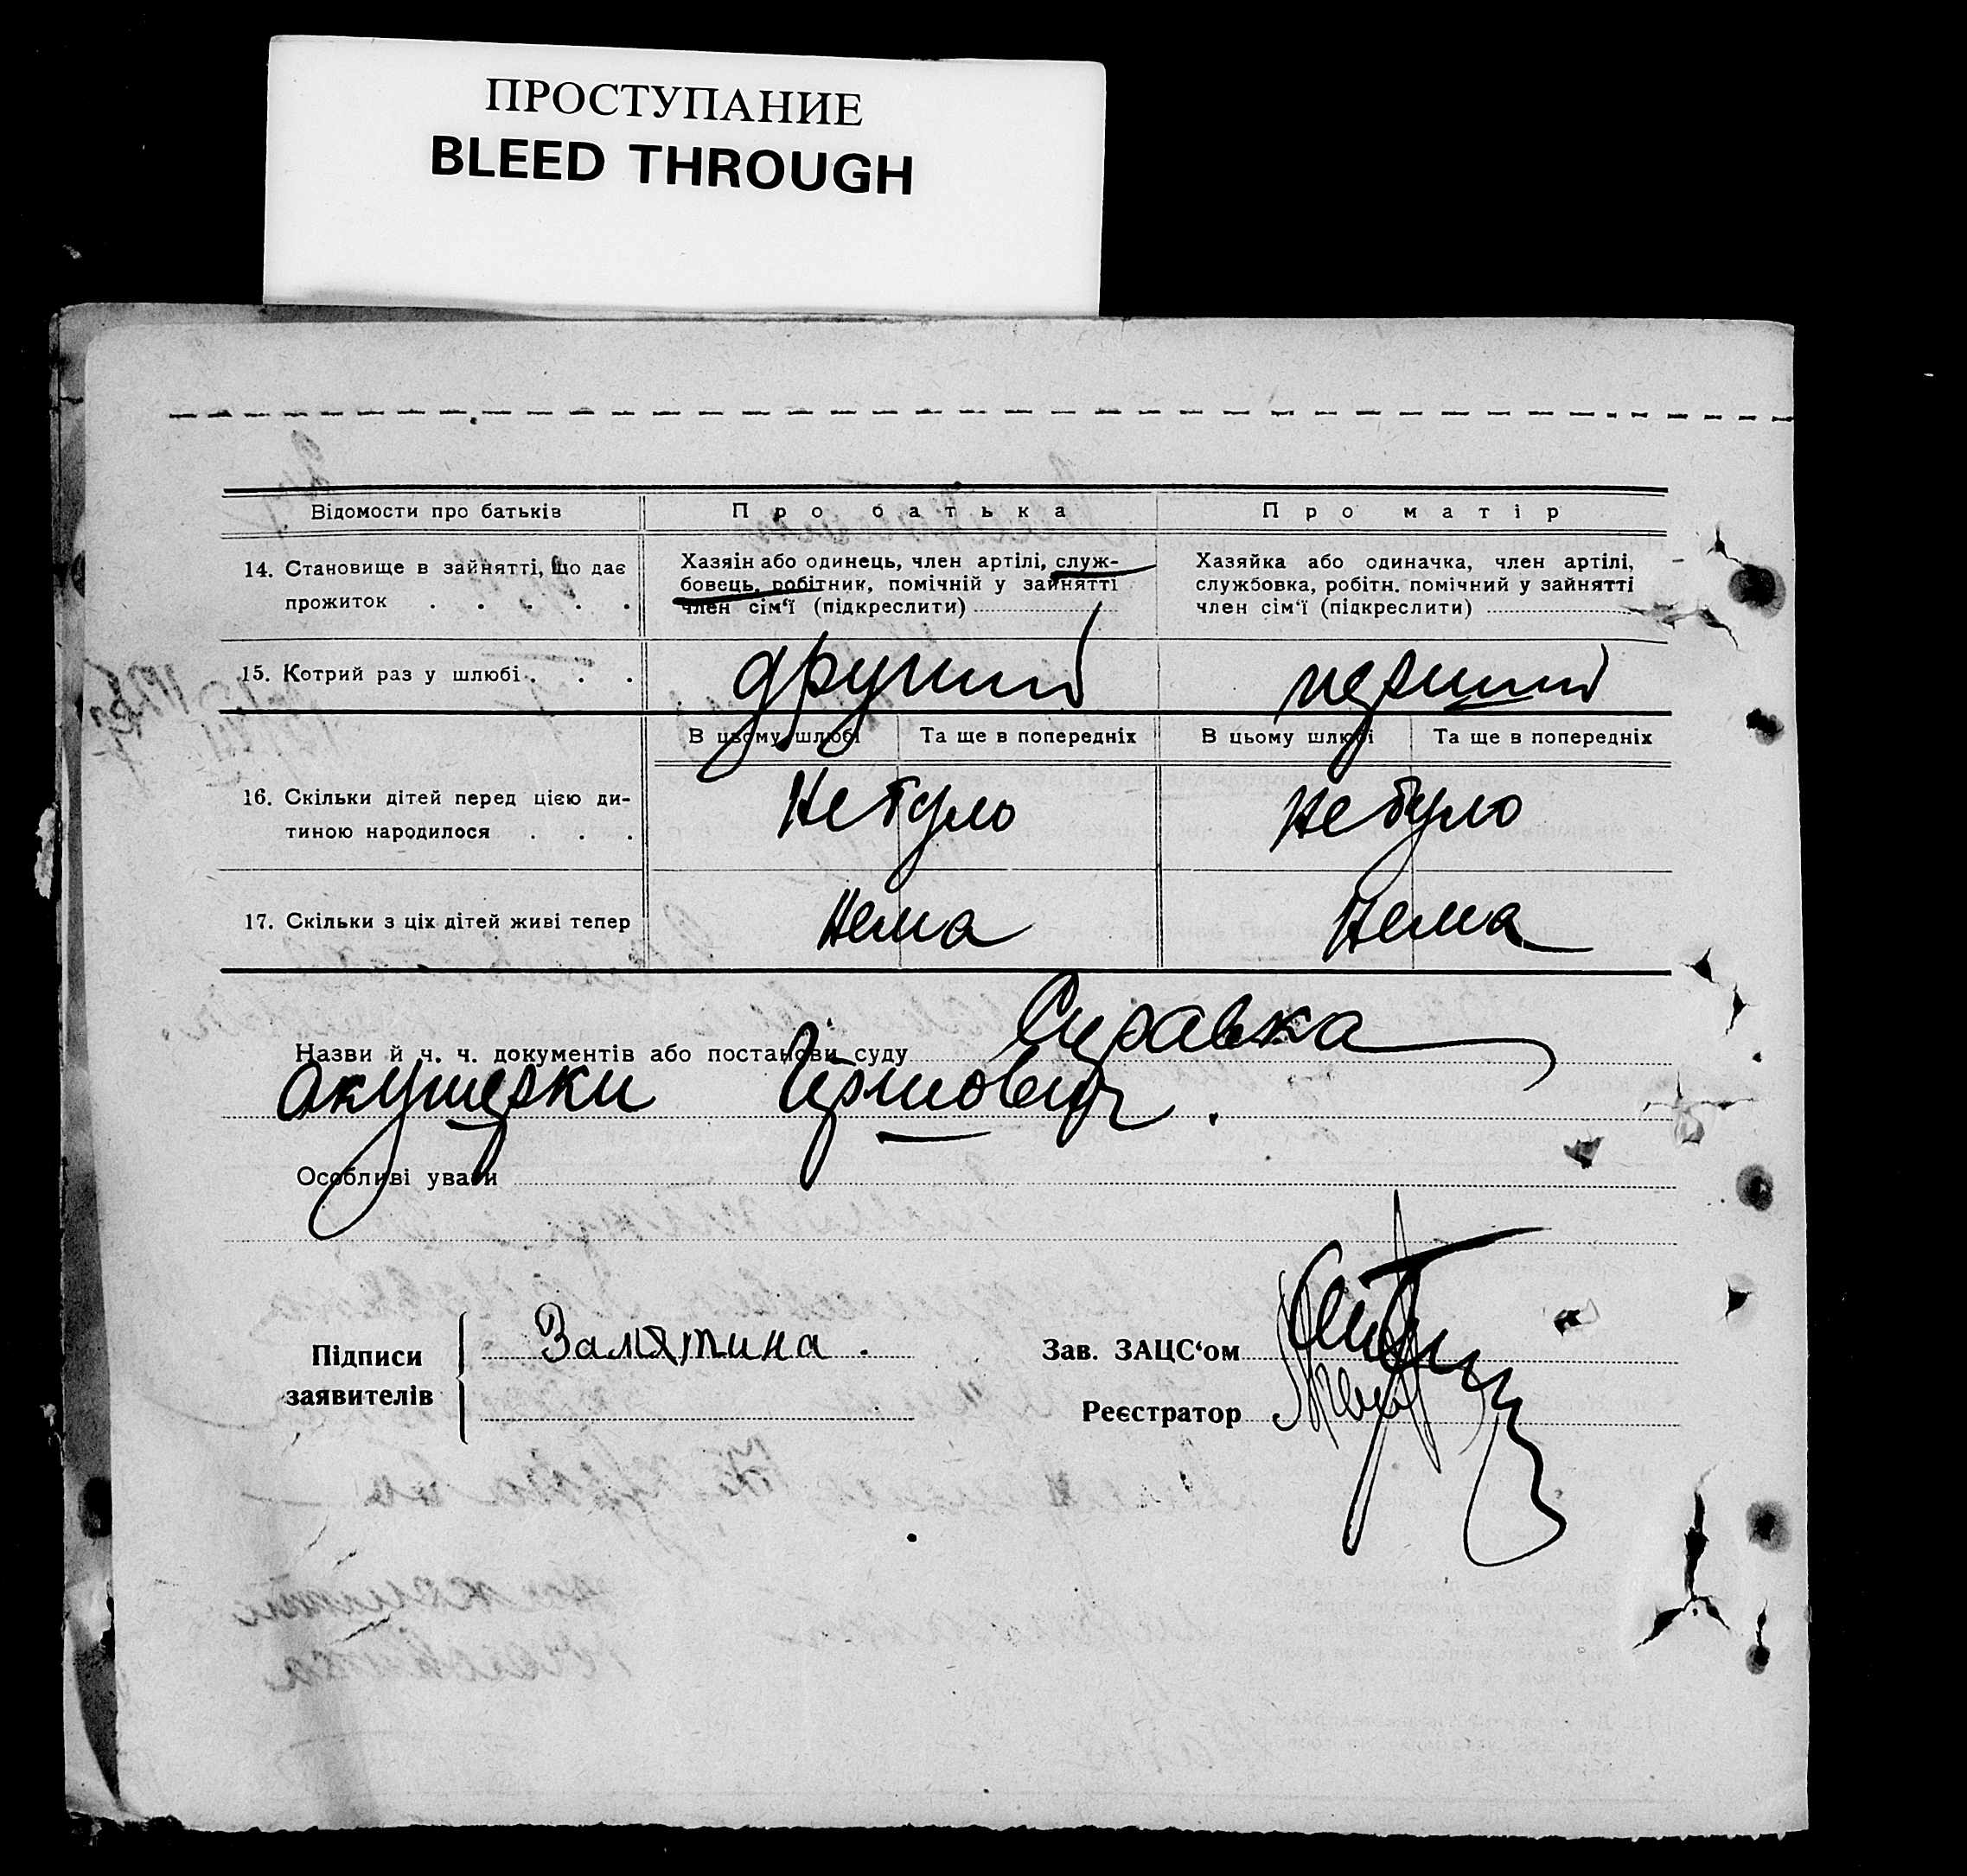 ПРОСТУПАНИЕ
BLEED THROUGH
Відомости про батьків
Про батька
Про матір
14. Становище в зайнятті, що дає
прожиток . . . . .
Хазяін або одинець, член артілі, служ-
бовець, робітник, помічній у зайнятті
член сім'ї (підкреслити)
Хазяйка або одиначка, член артілі,
службовка, робітн. помічний у зайнятті
член сім'ї (підкреслити)
15. Котрий раз у шлюбі . . .
другий
перший
В цьому шлюбі
Та ще в попередніх
В цьому шлюбі
Та ще в попередніх
16. Скільки дітей перед цією ди-
тиною народилося . . .
не було
не було
17. Скільки з ціх дітей живі тепер
нема
нема
Назви й ч. ч. документів або постанови суду Справка
акушерки
Особливі уваги
Підписи
заявителів
Замятина.
Зав. ЗАЦС‘ом
Реєстратор